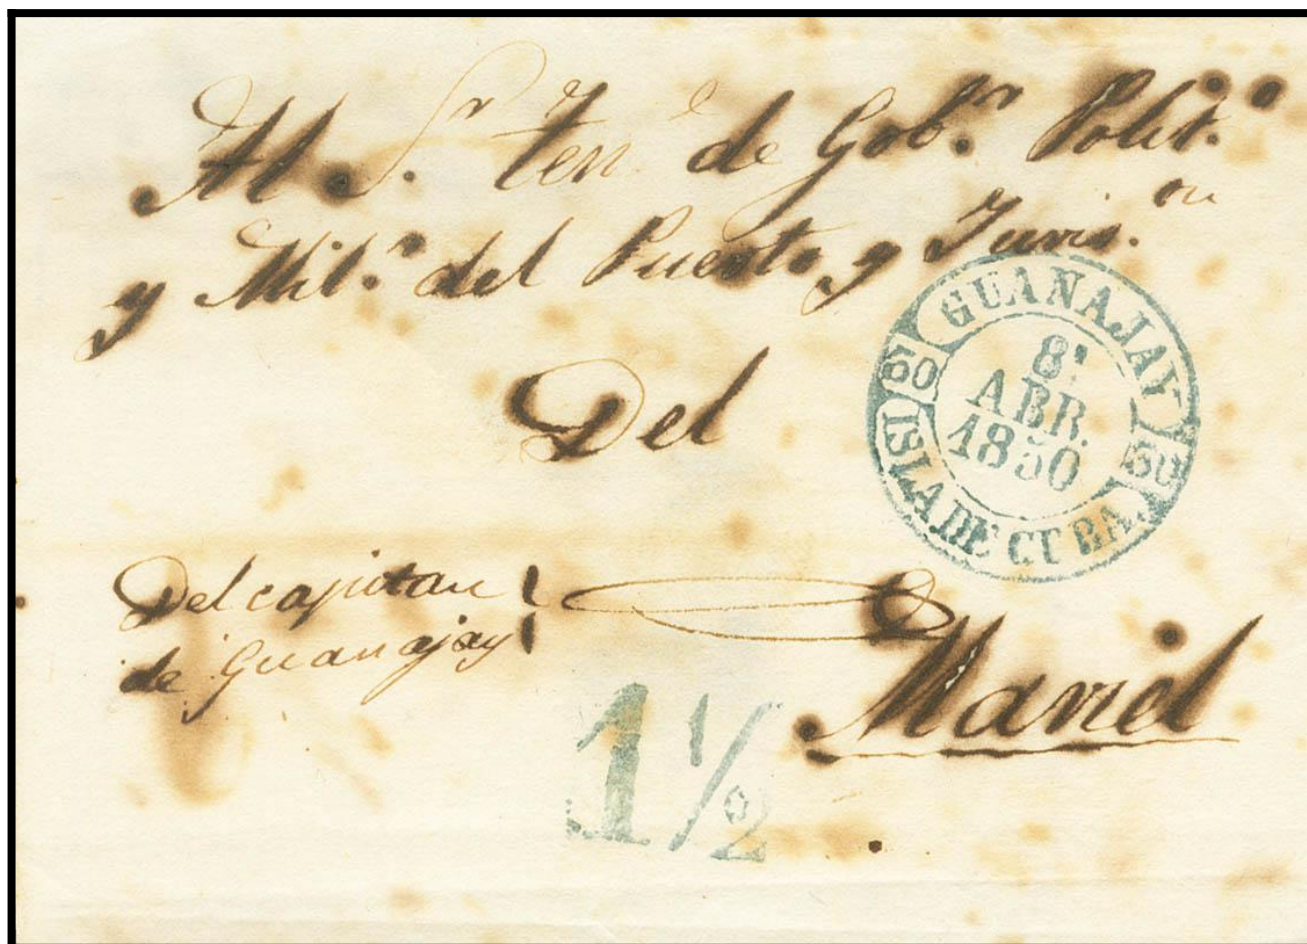 Al S.r Ten.e de Gob.no Polit.o
y Mil.r del Puerto y Juris.on
Del
GUANAJAY
8
ABR.
1850
ISLA DE CUBA
Del capitan
de Guanajay
Mariel
1 1/2